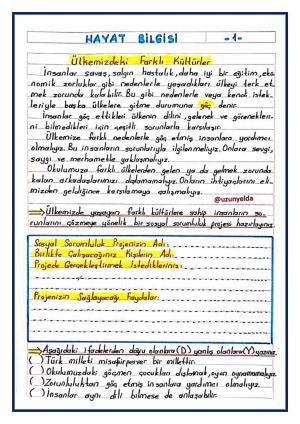 HAYAT BİLGİSİ
-1-
Ülkemizdeki Farklı Kültürler
İnsanlar savaş, salgın hastalık, daha iyi bir eğitim, eko
nomik zorluklar gibi nedenlerle yaşadıkları ülkeyi terk et
mek zorunda kalabilir. Bu gibi nedenlerle veya kendi istek-
leriyle başka ülkelere gitme durumuna göç denir.
İnsanlar göç ettikleri ülkenin dilini, gelenek ve görenekleri-
ni bilmedikleri için çeşitli sorunlarla karşılaşır.
Ülkemize farklı nedenlerle göç etmiş insanlara yardımcı
olmalıyız. Bu insanların sorunlarıyla ilgilenmeliyiz. Onlara sevgi,
saygı ve merhametle yaklaşmalıyız.
Okulumuza farklı ülkelerden gelen ya da gelmek zorunda
kalan arkadaşlarımızı dışlamamalıyız. Onların ihtiyaçlarını eli-
mizden geldiğince karşılamaya çalışmalıyız.
@uzunyolda
Ülkemizde yaşayan farklı kültürlere sahip insanların so-
runlarını çözmeye yönelik bir sosyal sorumluluk projesi hazırlayınız.
Sosyal Sorumluluk Projenizin Adı:
Birlikte Çalışacağınız Kişilerin Adı:
Projede Gerçekleştirmek İstedikleriniz:
Projenizin Sağlayacağı Faydalar:
Aşağıdaki ifadelerden doğru olanlara (D) yanlış olanlara (Y) yazınız.
( ) Türk milleti misafirperver bir millettir.
( ) Okulumuzdaki göçmen çocukları dışlamalı, oyun oynamamalıyız.
( ) Zorunluluktan göç etmiş insanlara yardımcı olmalıyız.
( ) İnsanlar aynı dili bilmese de anlaşabilir.